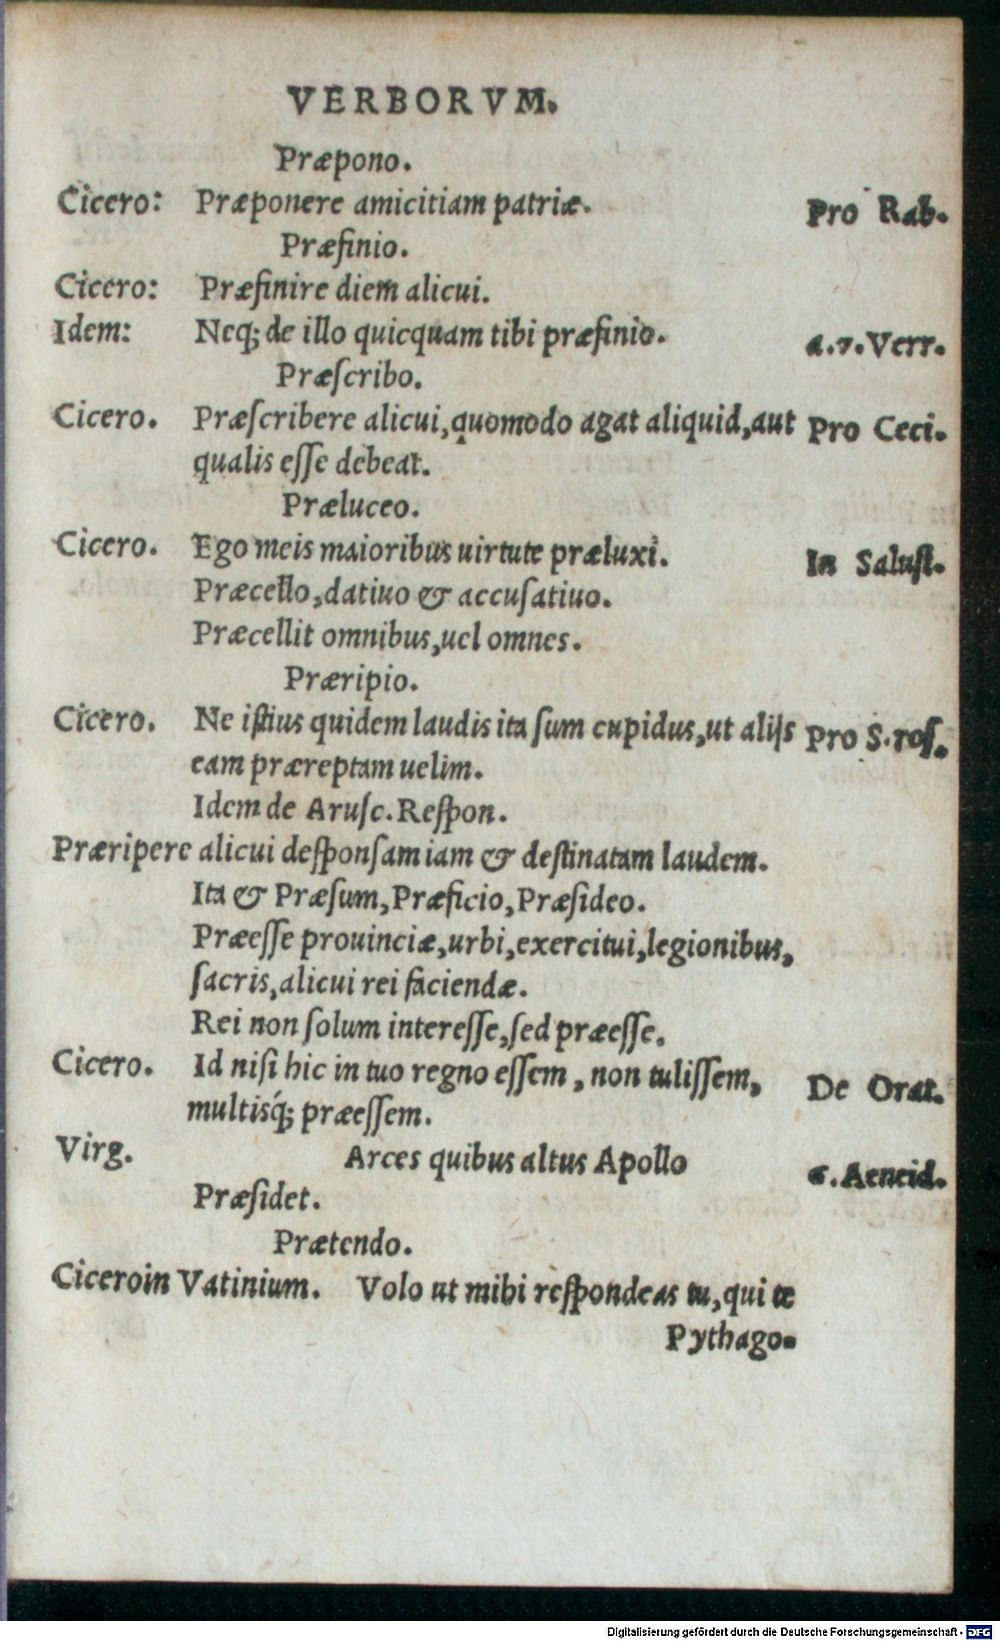 VERBORVM.
Præpono.
Cicero: Præponere amicitiam patriæ. Pro Rab.
Præfinio.
Cicero: Præfinire diem alicui.
Idem: Neq; de illo quicquam tibi præfinio. a.7.Verr.
Præſcribo.
Cicero. Præſcribere alicui,quomodo agat aliquid,aut Pro Ceci.
qualis eſſe debeat.
Præluceo.
Cicero. Ego meis maioribus uirtute præluxi. In Saluſt.
Præcello,datiuo & accuſatiuo.
Præcellit omnibus,uel omnes.
Præripio.
Cicero. Ne iſtius quidem laudis ita ſum cupidus,ut alijs Pro S.roſ.
eam præreptam uelim.
Idem de Aruſc.Reſpon.
Præripere alicui deſponſam iam & deſtinatam laudem.
Ita & Præſum,Præficio,Præſideo.
Præeſſe prouinciæ,urbi,exercitui,legionibus,
ſacris,alicui rei faciendæ.
Rei non ſolum intereſſe,ſed præeſſe.
Cicero. Id niſi hic in tuo regno eſſem, non tuliſſem, De Orat.
multisq́; præeſſem.
Virg. Arces quibus altus Apollo 6.Aeneid.
Præſidet.
Prætendo.
Cicero in Vatinium. Volo ut mihi reſpondeas tu,qui te
Pythago-
Digitalisierung gefördert durch die Deutsche Forschungsgemeinschaft - DFG